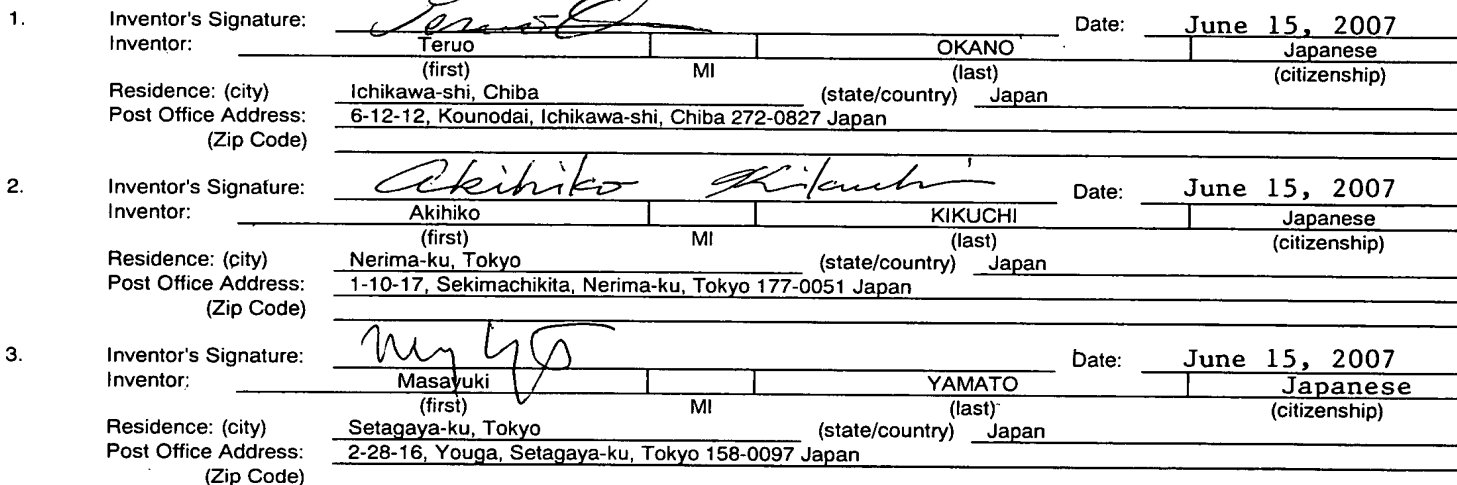 1. Inventor's Signature: Date: June 15, 2007
Inventor: Teruo OKANO Japanese
(first) MI (last) (citizenship)
Residence: (city) Ichikawa-shi, Chiba (state/country) Japan
Post Office Address: 6-12-12, Kounodai, Ichikawa-shi, Chiba 272-0827 Japan
(Zip Code)
2. Inventor's Signature: Akihiko Kikuchi Date: June 15, 2007
Inventor: Akihiko KIKUCHI Japanese
(first) MI (last) (citizenship)
Residence: (city) Nerima-ku, Tokyo (state/country) Japan
Post Office Address: 1-10-17, Sekimachikita, Nerima-ku, Tokyo 177-0051 Japan
(Zip Code)
3. Inventor's Signature: Date: June 15, 2007
Inventor: Masayuki YAMATO Japanese
(first) MI (last) (citizenship)
Residence: (city) Setagaya-ku, Tokyo (state/country) Japan
Post Office Address: 2-28-16, Youga, Setagaya-ku, Tokyo 158-0097 Japan
(Zip Code)